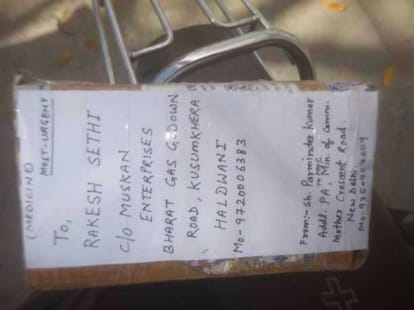 (MEDICINE)
MOST-URGENT
To,
RAKESH SETHI
C/O MUSKAN
ENTERPRISES
BHARAT GAS GODOWN
ROAD, KUSUMKHERA
HALDWANI
Mo-9720006383
From:- Sh. Parminder Kumar
Addl. PA, Min. of Commu.
Mother Crescent Road,
New Delhi